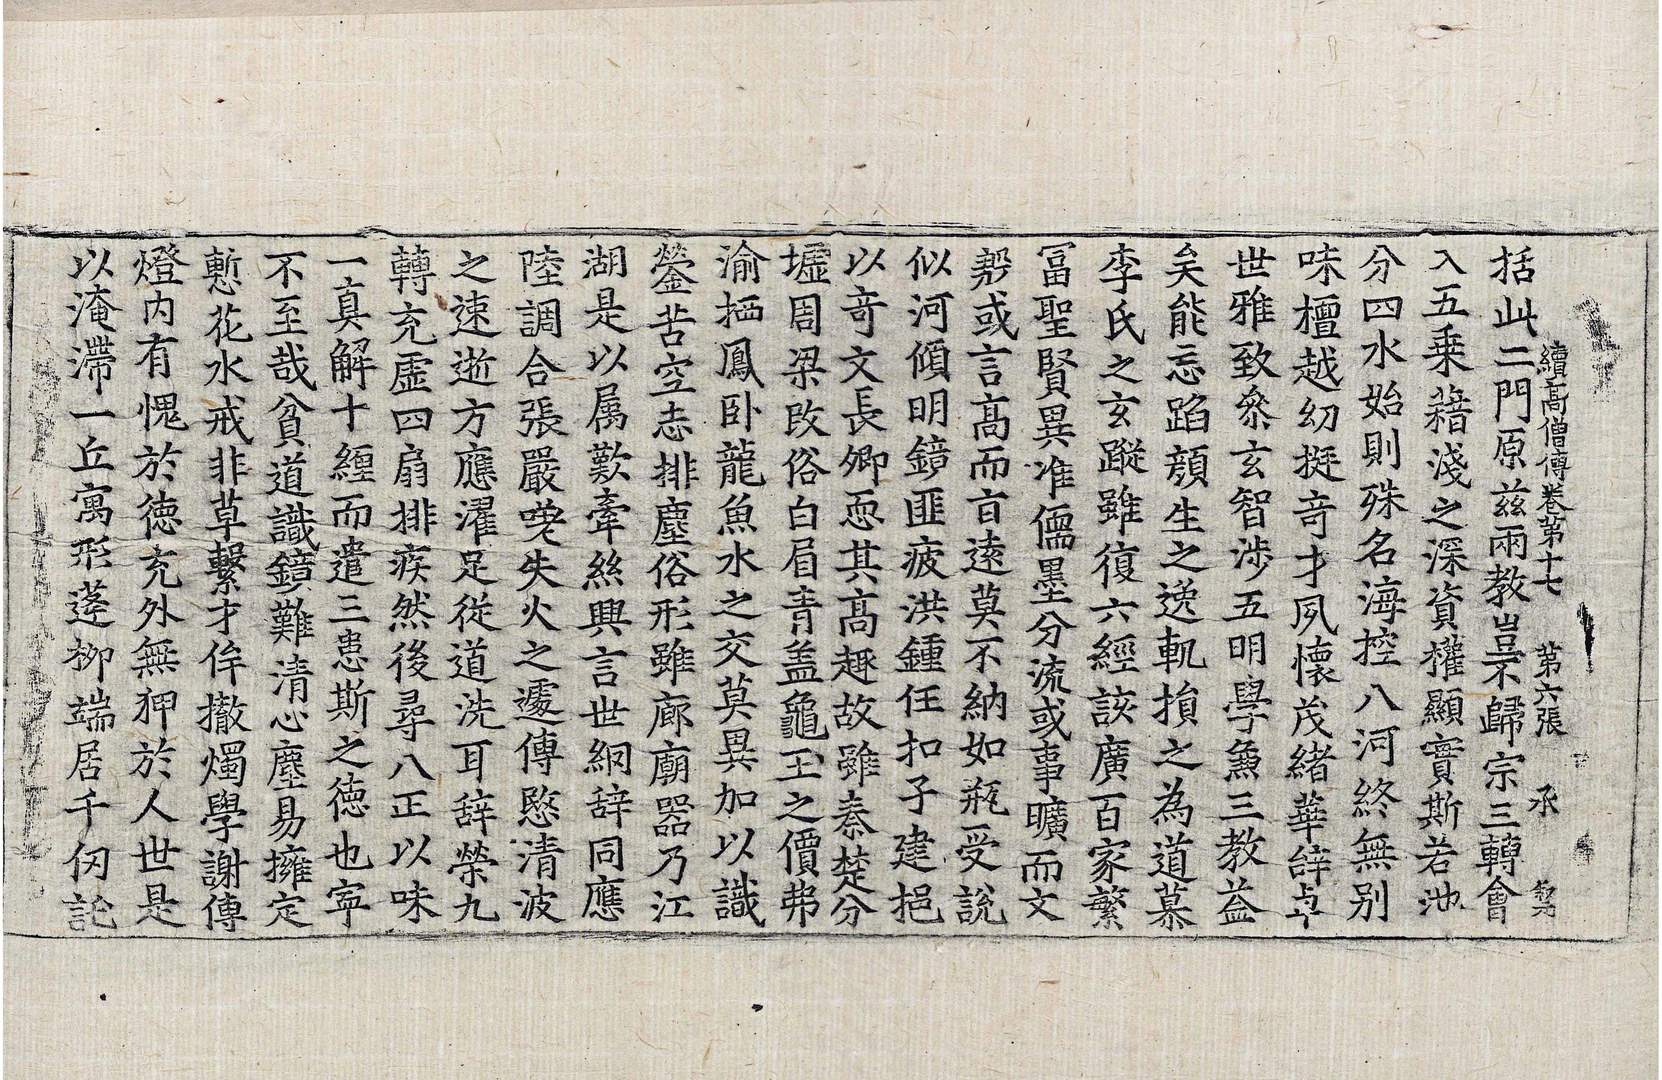 續高僧傳卷第十七 第六張 承
括此二門原茲兩教豈不歸宗三轉會
入五乗藉淺之深資權顯實斯若池
分四水始則殊名海控八河終無別
味檀越幼挺竒才夙懷茂緒華辝卓
世雅致叅玄智渉五明學兼三教益
矣能忘蹈顔生之逸軌損之為道慕
李氏之玄蹤雖復六經該廣百家繁
冨聖賢異准儒墨分流或事曠而文
或言髙而㫖遠莫不納如瓶受說
似河傾明鏡匪疲洪鍾任扣子建挹
以竒文長卿恧其髙趣故雖秦楚分
墟周梁改俗白眉青盖龜玉之價弗
渝栖鳳卧龍魚水之交莫異加以識
鎣苦空志排塵俗形雖廊廟器乃江
湖是以属歎牽絲興言世網辞同應
陸調合張嚴嘆失火之遽傳愍清波
之速逝方應濯足従道洗耳辞榮九
轉充虛四扇排疾然後尋八正以味
一真解十纏而遣三患斯之徳也寧
不至哉貧道識鏡難清心塵易擁定
慙花水戒非草繫才侔撤燭學謝傳
燈内有愧於徳充外無狎於人世是
以淹滯一丘寓形蓬柳端居千仞託